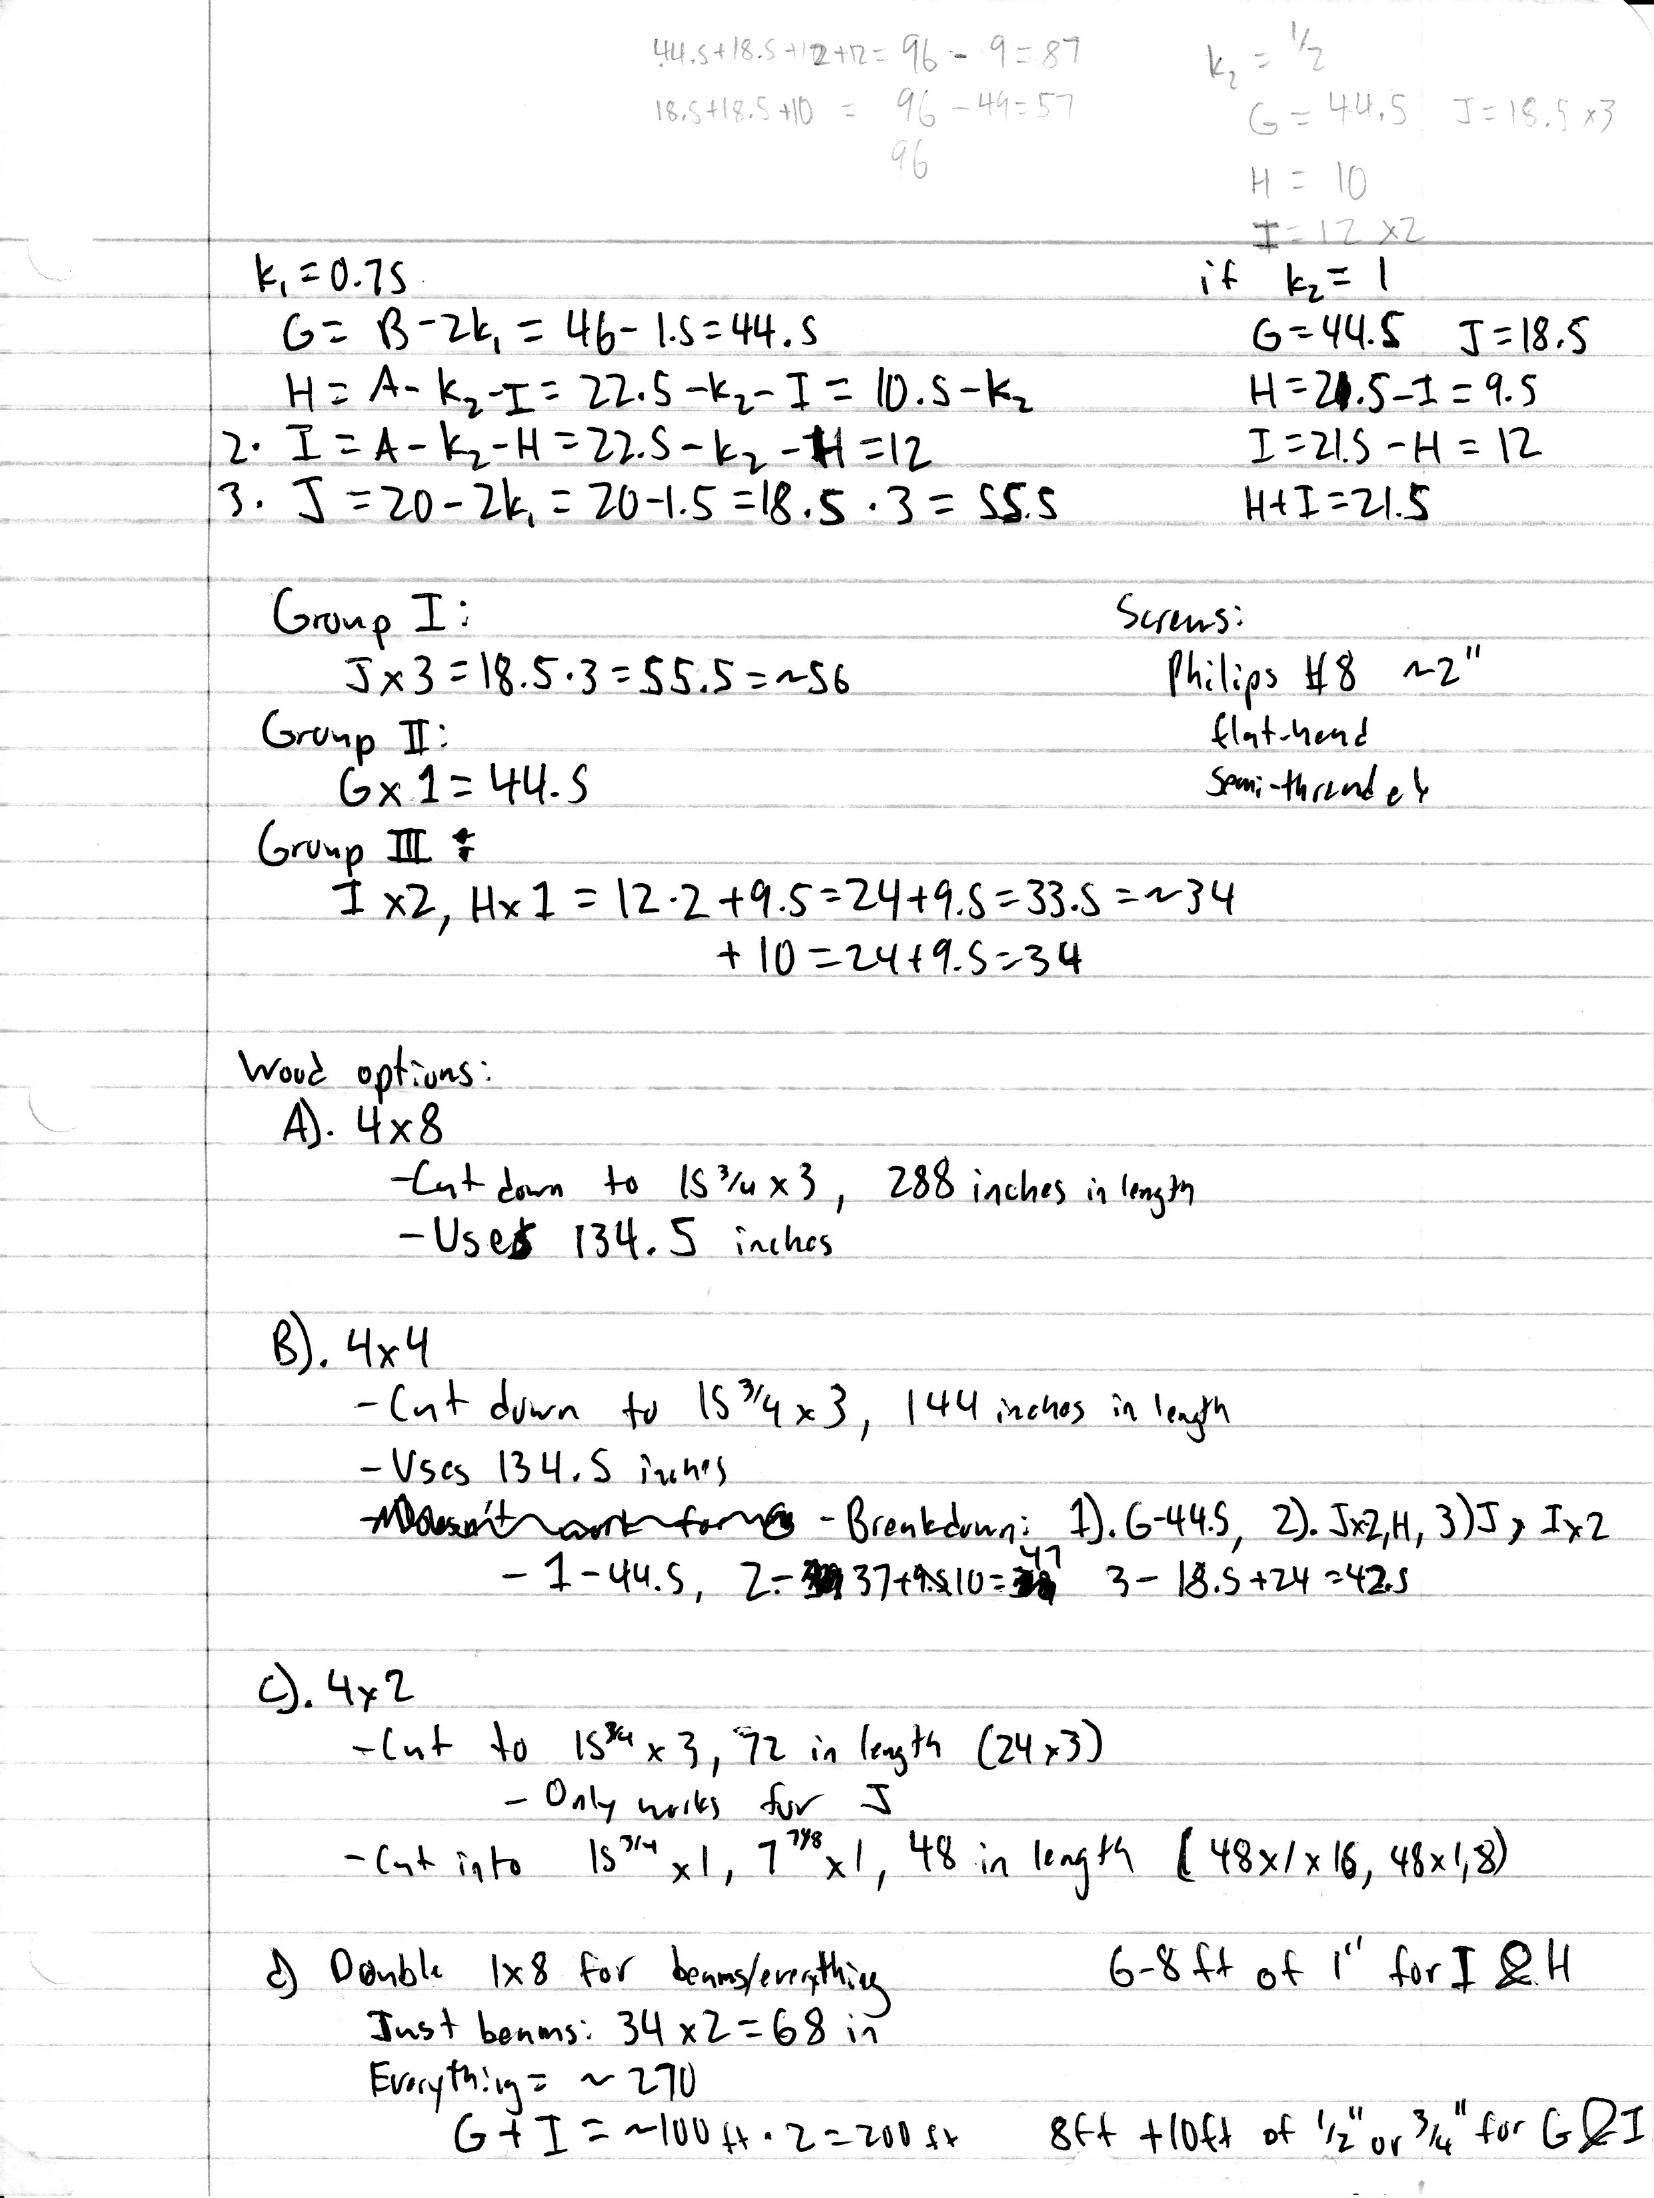 44.5+18.5+12+12= 96 - 9=87
18.5+18.5+10 = 96 -49=57
96
k₂ = 1/2
G = 44.5 J=18.5 x3
H = 10
I=12 x2
k₁=0.75
G= B-2k₁ = 46-1.5=44.5
H= A-k₂-I= 22.5-k₂-I= 10.5-k₂
2. I=A-k₂-H=22.5-k₂-H=12
3. J=20-2k₁=20-1.5=18.5·3=55.5
if k₂= 1
G=44.5 J=18.5
H=21.5-I=9.5
I=21.5-H=12
H+I=21.5
Group I:
Jx3=18.5·3=55.5=~56
Group II:
Gx1=44.5
Group III:
Ix2, Hx1=12·2+9.5=24+9.5=33.5=~34
+10=24+9.5=34
Screws:
Philips #8 ~2"
flat-head
semi-threaded
Wood options:
A). 4x8
-Cut down to 15 3/4 x3, 288 inches in length
-Uses 134.5 inches
B). 4x4
-Cut down to 15 3/4 x3, 144 inches in length
-Uses 134.5 inches
-Doesn't work for G -Breakdown: 1). G-44.5, 2). Jx2,H, 3)J, Ix2
- 1-44.5, 2- 37+9.5 10= 47 3- 18.5+24=42.5
C). 4x2
-Cut to 15 3/4 x3, 72 in length (24x3)
- Only works for J
-Cut into 15 3/4 x1, 7 7/8 x1, 48 in length (48x1x16, 48x1,8)
d) Double 1x8 for beams/everything
Just beams: 34x2=68 in
Everything= ~270
G+I=~100ft·2=200ft
6-8ft of 1" for I & H
8ft +10ft of 1/2" or 3/4" for G&I